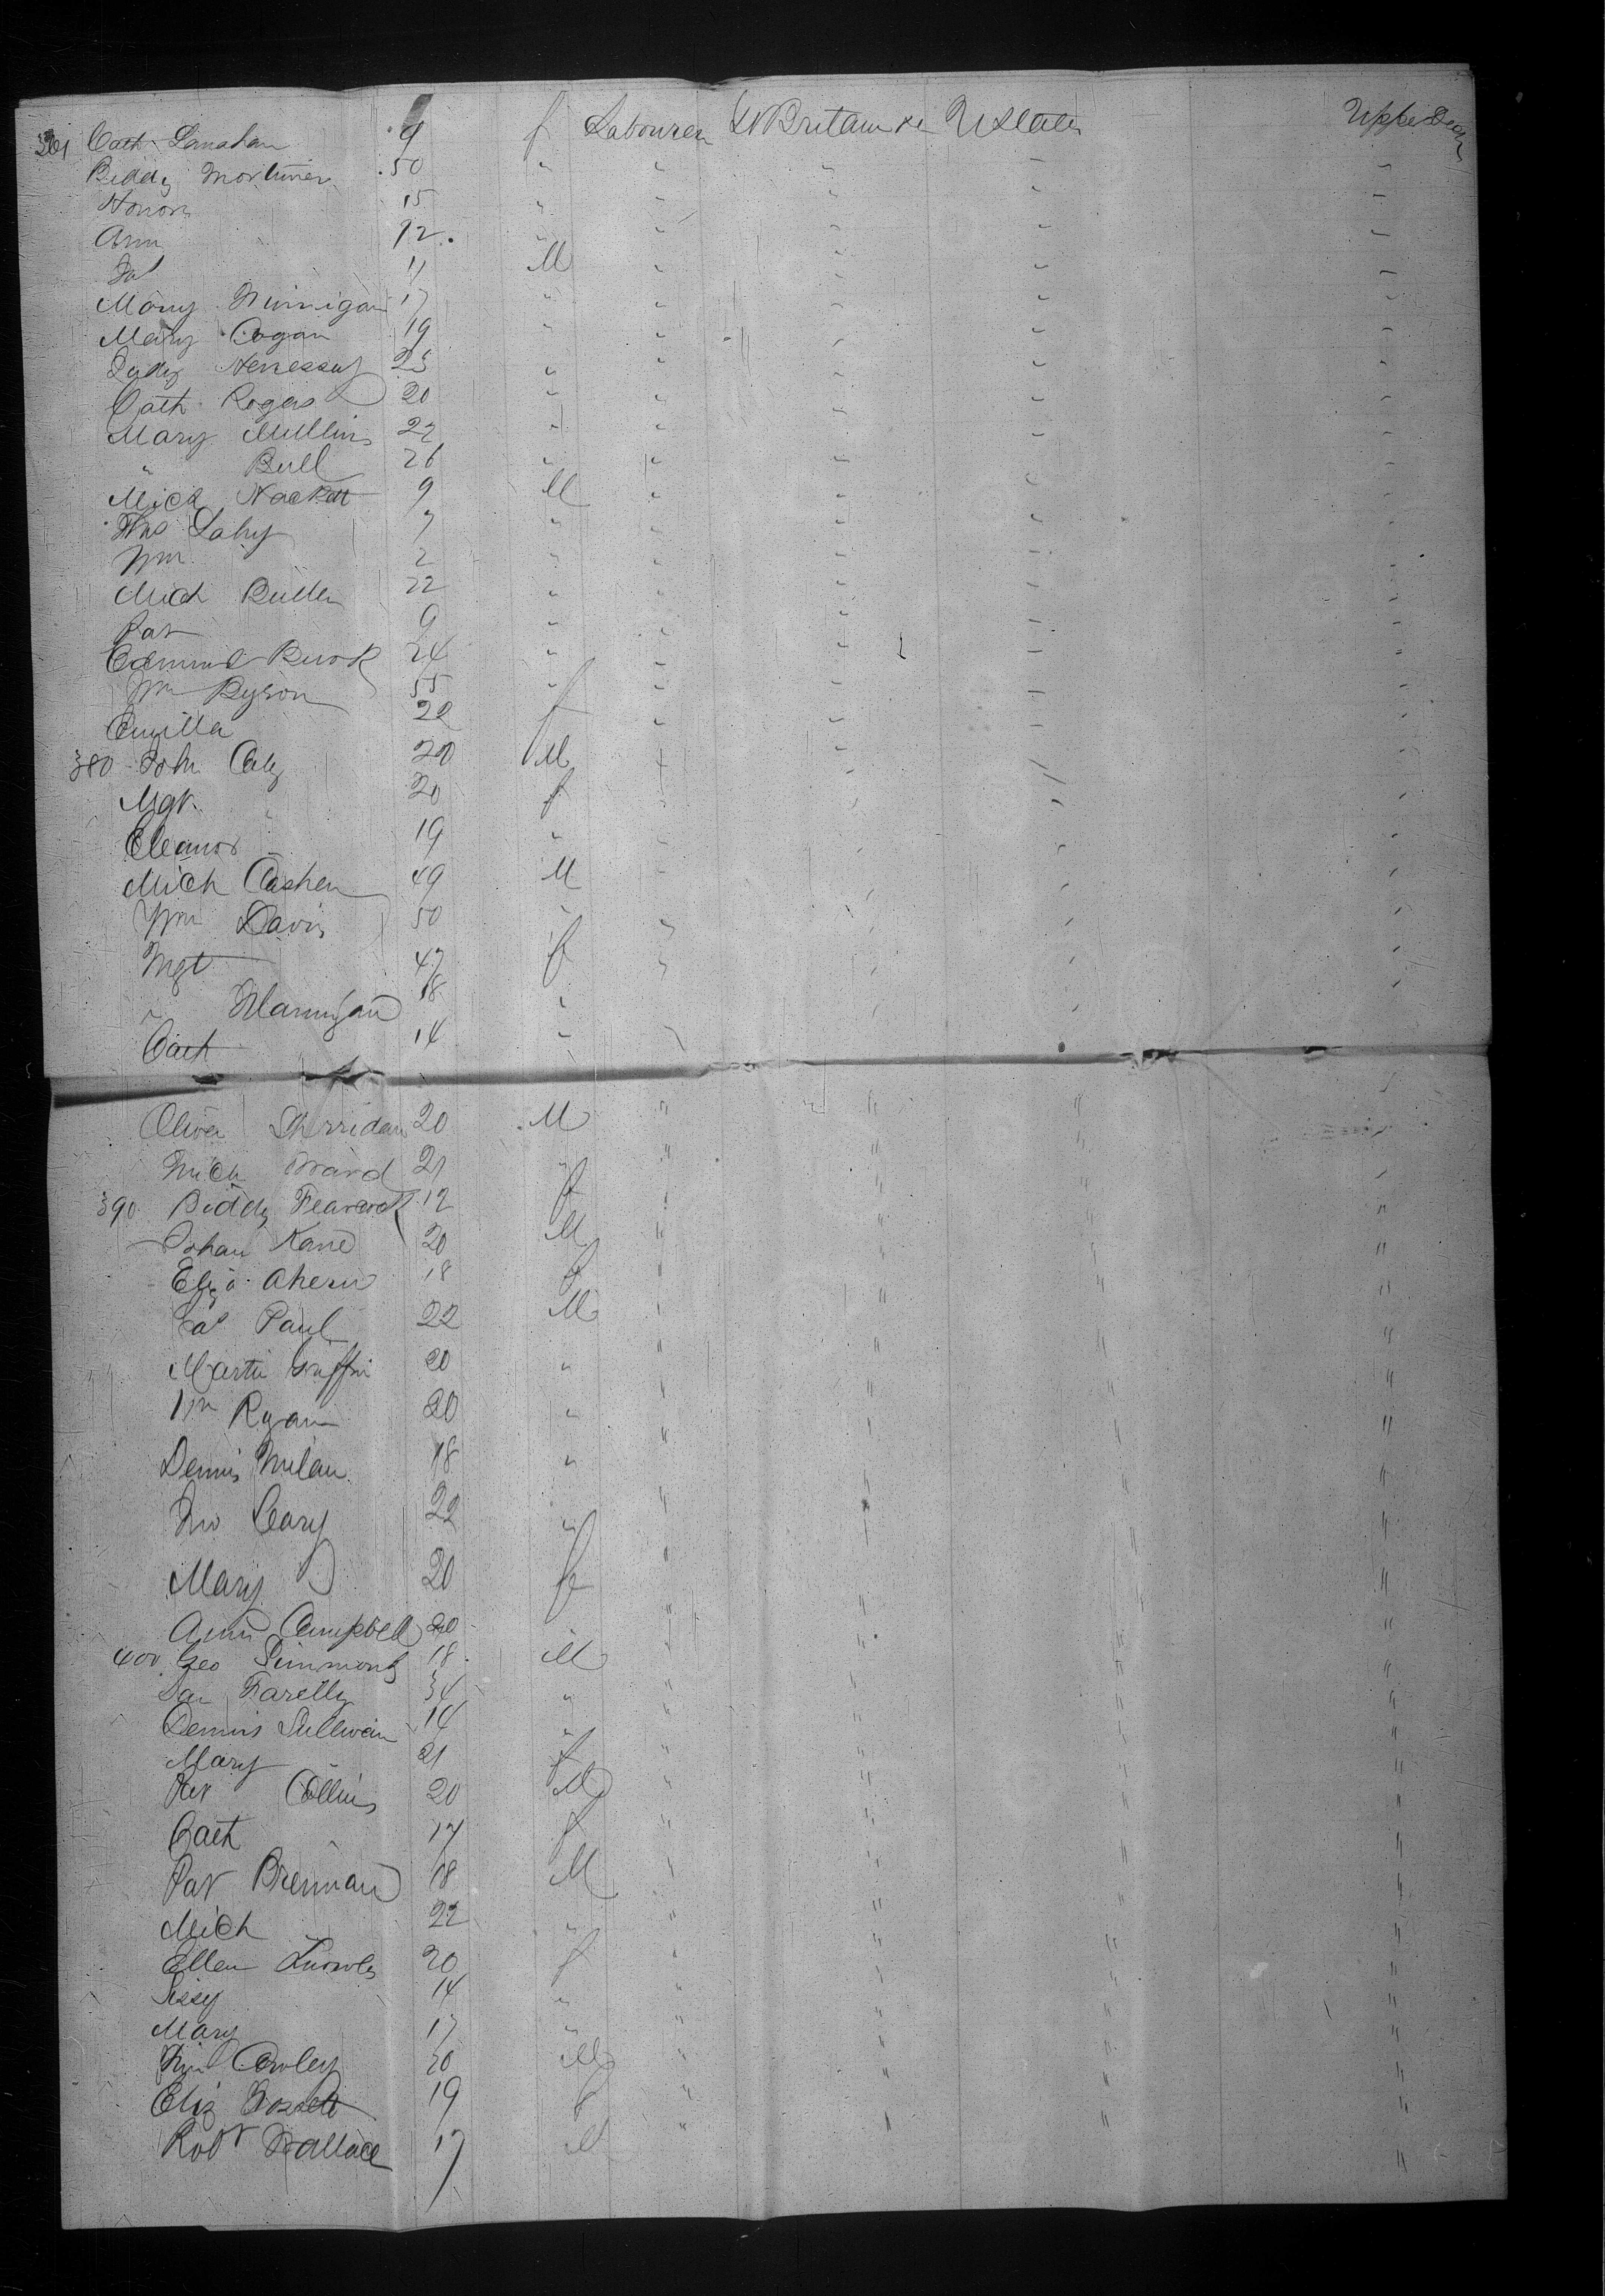 361 Cath Lanahan 9 f Labourer Gt Britain &c U States Upper Deck
Biddy Mortimer 50 " " " " "
Honora 15 " " " " "
Ann 12 " " " " "
Pat 11 M " " " "
Mary Finnigan 17 " " " " "
Mary Cogan 19 " " " " "
Judy Henessey 25 " " " " "
Cath Rogers 20 " " " " "
Mary Mullins 22 " " " " "
" Bull 26 " " " " "
Mich Hackett 9 M " " " "
Thos Lahy 7 " " " " "
Wm 2 " " " " "
Mich Butler 22 " " " " "
Pat 9 " " " " "
Edmund Burk 24 " " " " "
Wm Byron 55 " " " " "
22 f " " " "
380 John Caly 20 M " " " "
Mgt 20 f " " " "
Eleanor 19 " " " " "
Mich Cashen 49 M " " " "
Wm Davis 50 " " " " "
Mgt 47 f " " " "
" Mannigan 18 " " " " "
Cath 14 " "
Oliver Sherridan 20 M " " " "
Mich Ward 21 " " " "
390 Biddy 12 f " " " "
Johan Kane 20 M " " " "
Eliza Ahern 18 f " " " "
Pat Paul 22 M " " " "
Martin Griffin 20 " " " " "
Wm Ryan 20 " " " " "
Dennis 18 " " " " "
Jno Leary 22 " " " " "
Mary 20 f " " " "
Ann Campbell 20 " " " "
400 Geo Simmonds 18 M " " " "
Farelly 34 " " " " "
Dennis Sullivan 14 " " " " "
Mary 21 f " " " "
Pat Collins 20 M " " " "
Cath 17 f " " " "
Pat Brennan 18 M " " " "
Mich 22 " " " " "
Ellen Knowles 20 f " " " "
Sissy 14 " " " " "
Mary 17 " " " " "
Cowley 20 M " " " "
Eliz 19 f " " " "
Robt Wallace 17 M " " " "